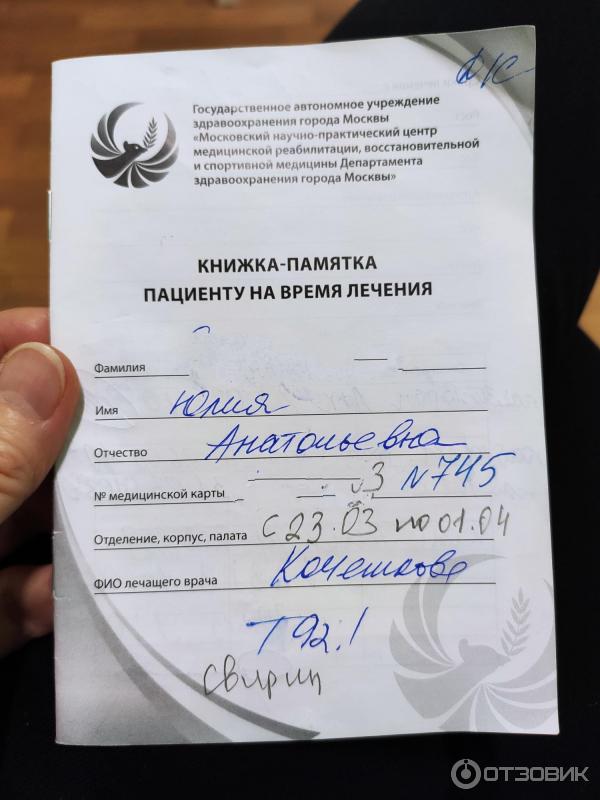 ДС
Государственное автономное учреждение
здравоохранения города Москвы
«Московский научно-практический центр
медицинской реабилитации, восстановительной
и спортивной медицины Департамента
здравоохранения города Москвы»
КНИЖКА-ПАМЯТКА
ПАЦИЕНТУ НА ВРЕМЯ ЛЕЧЕНИЯ
Фамилия
Имя Юлия
Отчество Анатольевна
№ медицинской карты из N745
Отделение, корпус, палата с 23.03 по 01.04
ФИО лечащего врача Кочешкова
T 92.1
Свирин
ОТЗОВИК